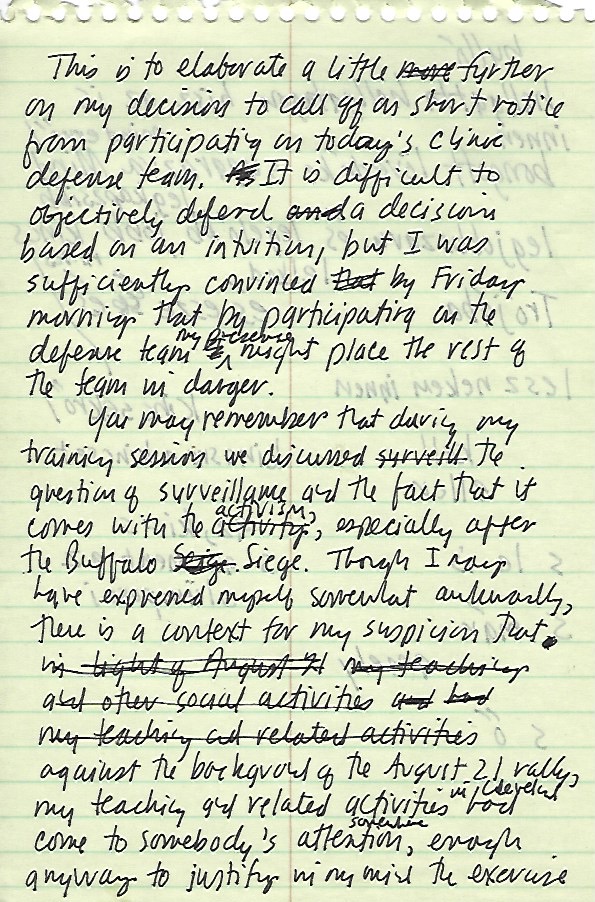 This is to elaborate a little more further
on my decision to call off on short notice
from participating on today's clinic
defense team. As It is difficult to
objectively defend and a decision
based on an intuition, but I was
sufficiently convinced that by Friday
morning that by participating on the
defense team my presence might place the rest of
the team in danger.
You may remember that during my
training session we discussed surveill the
question of surveillance and the fact that it
comes with the activity, activism, especially after
the Buffalo Seige. Siege. Though I may
have expressed myself somewhat awkwardly,
there is a context for my suspicion that
in light of August 21 my teaching
and other social activities and had
my teaching and related activities
against the background of the August 21 rally,
my teaching and related activities in Cleveland had
come to somebody's somewhere attention, enough
anyway to justify in my mind the exercise